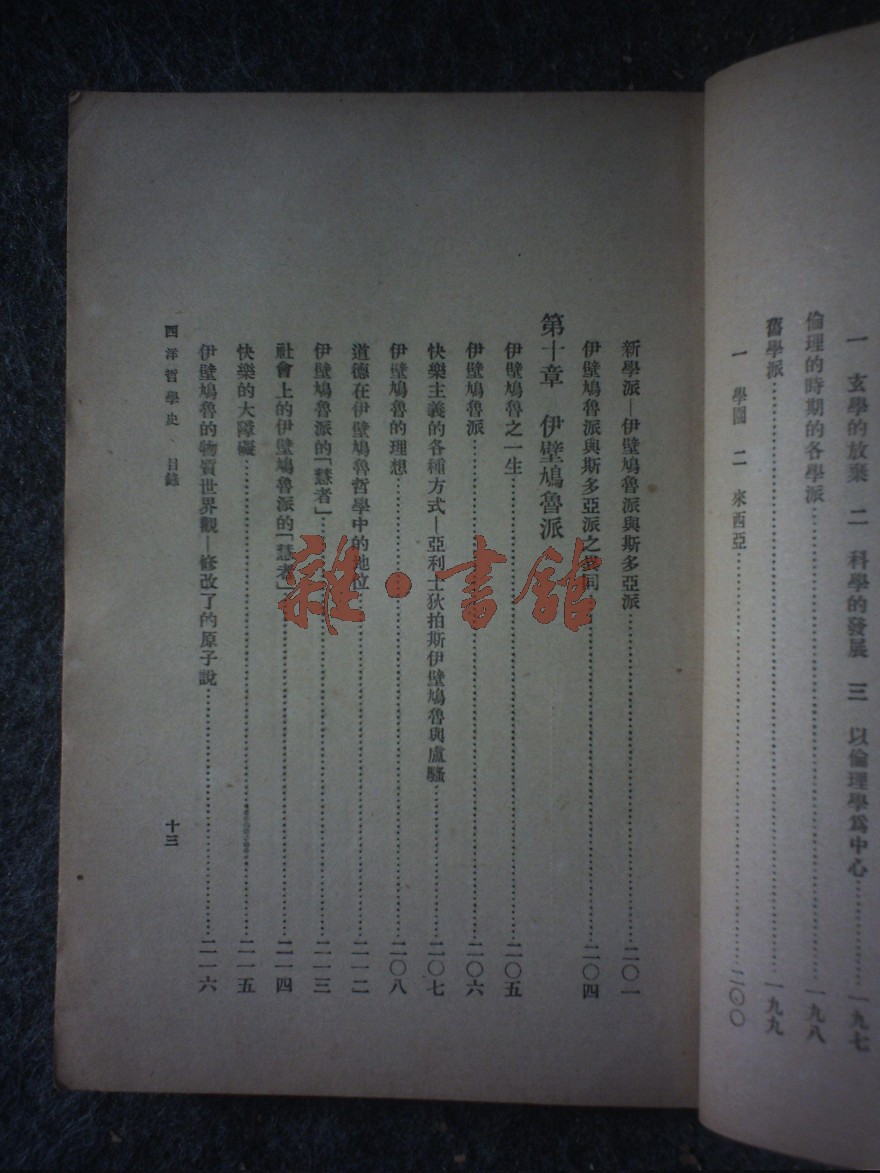 一　玄學的放棄　二　科學的發展　三　以倫理學爲中心……一九七
倫理的時期的各學派……一九八
舊學派……一九九
一　學園　二　來西亞……二〇〇
新學派—伊壁鳩魯派與斯多亞派……二〇一
伊壁鳩魯派與斯多亞派之異同……二〇四
第十章　伊壁鳩魯派
伊壁鳩魯之一生……二〇五
伊壁鳩魯派……二〇六
快樂主義的各種方式—亞利士狄拍斯伊壁鳩魯與盧騷……二〇七
伊壁鳩魯的理想……二〇八
道德在伊壁鳩魯哲學中的地位……二一二
伊壁鳩魯派的「慧者」……二一三
社會上的伊壁鳩魯派的「慧者」……二一四
快樂的大障礙……二一五
伊壁鳩魯的物質世界觀—修改了的原子說……二一六
西洋哲學史、目錄
十三
雜·書館